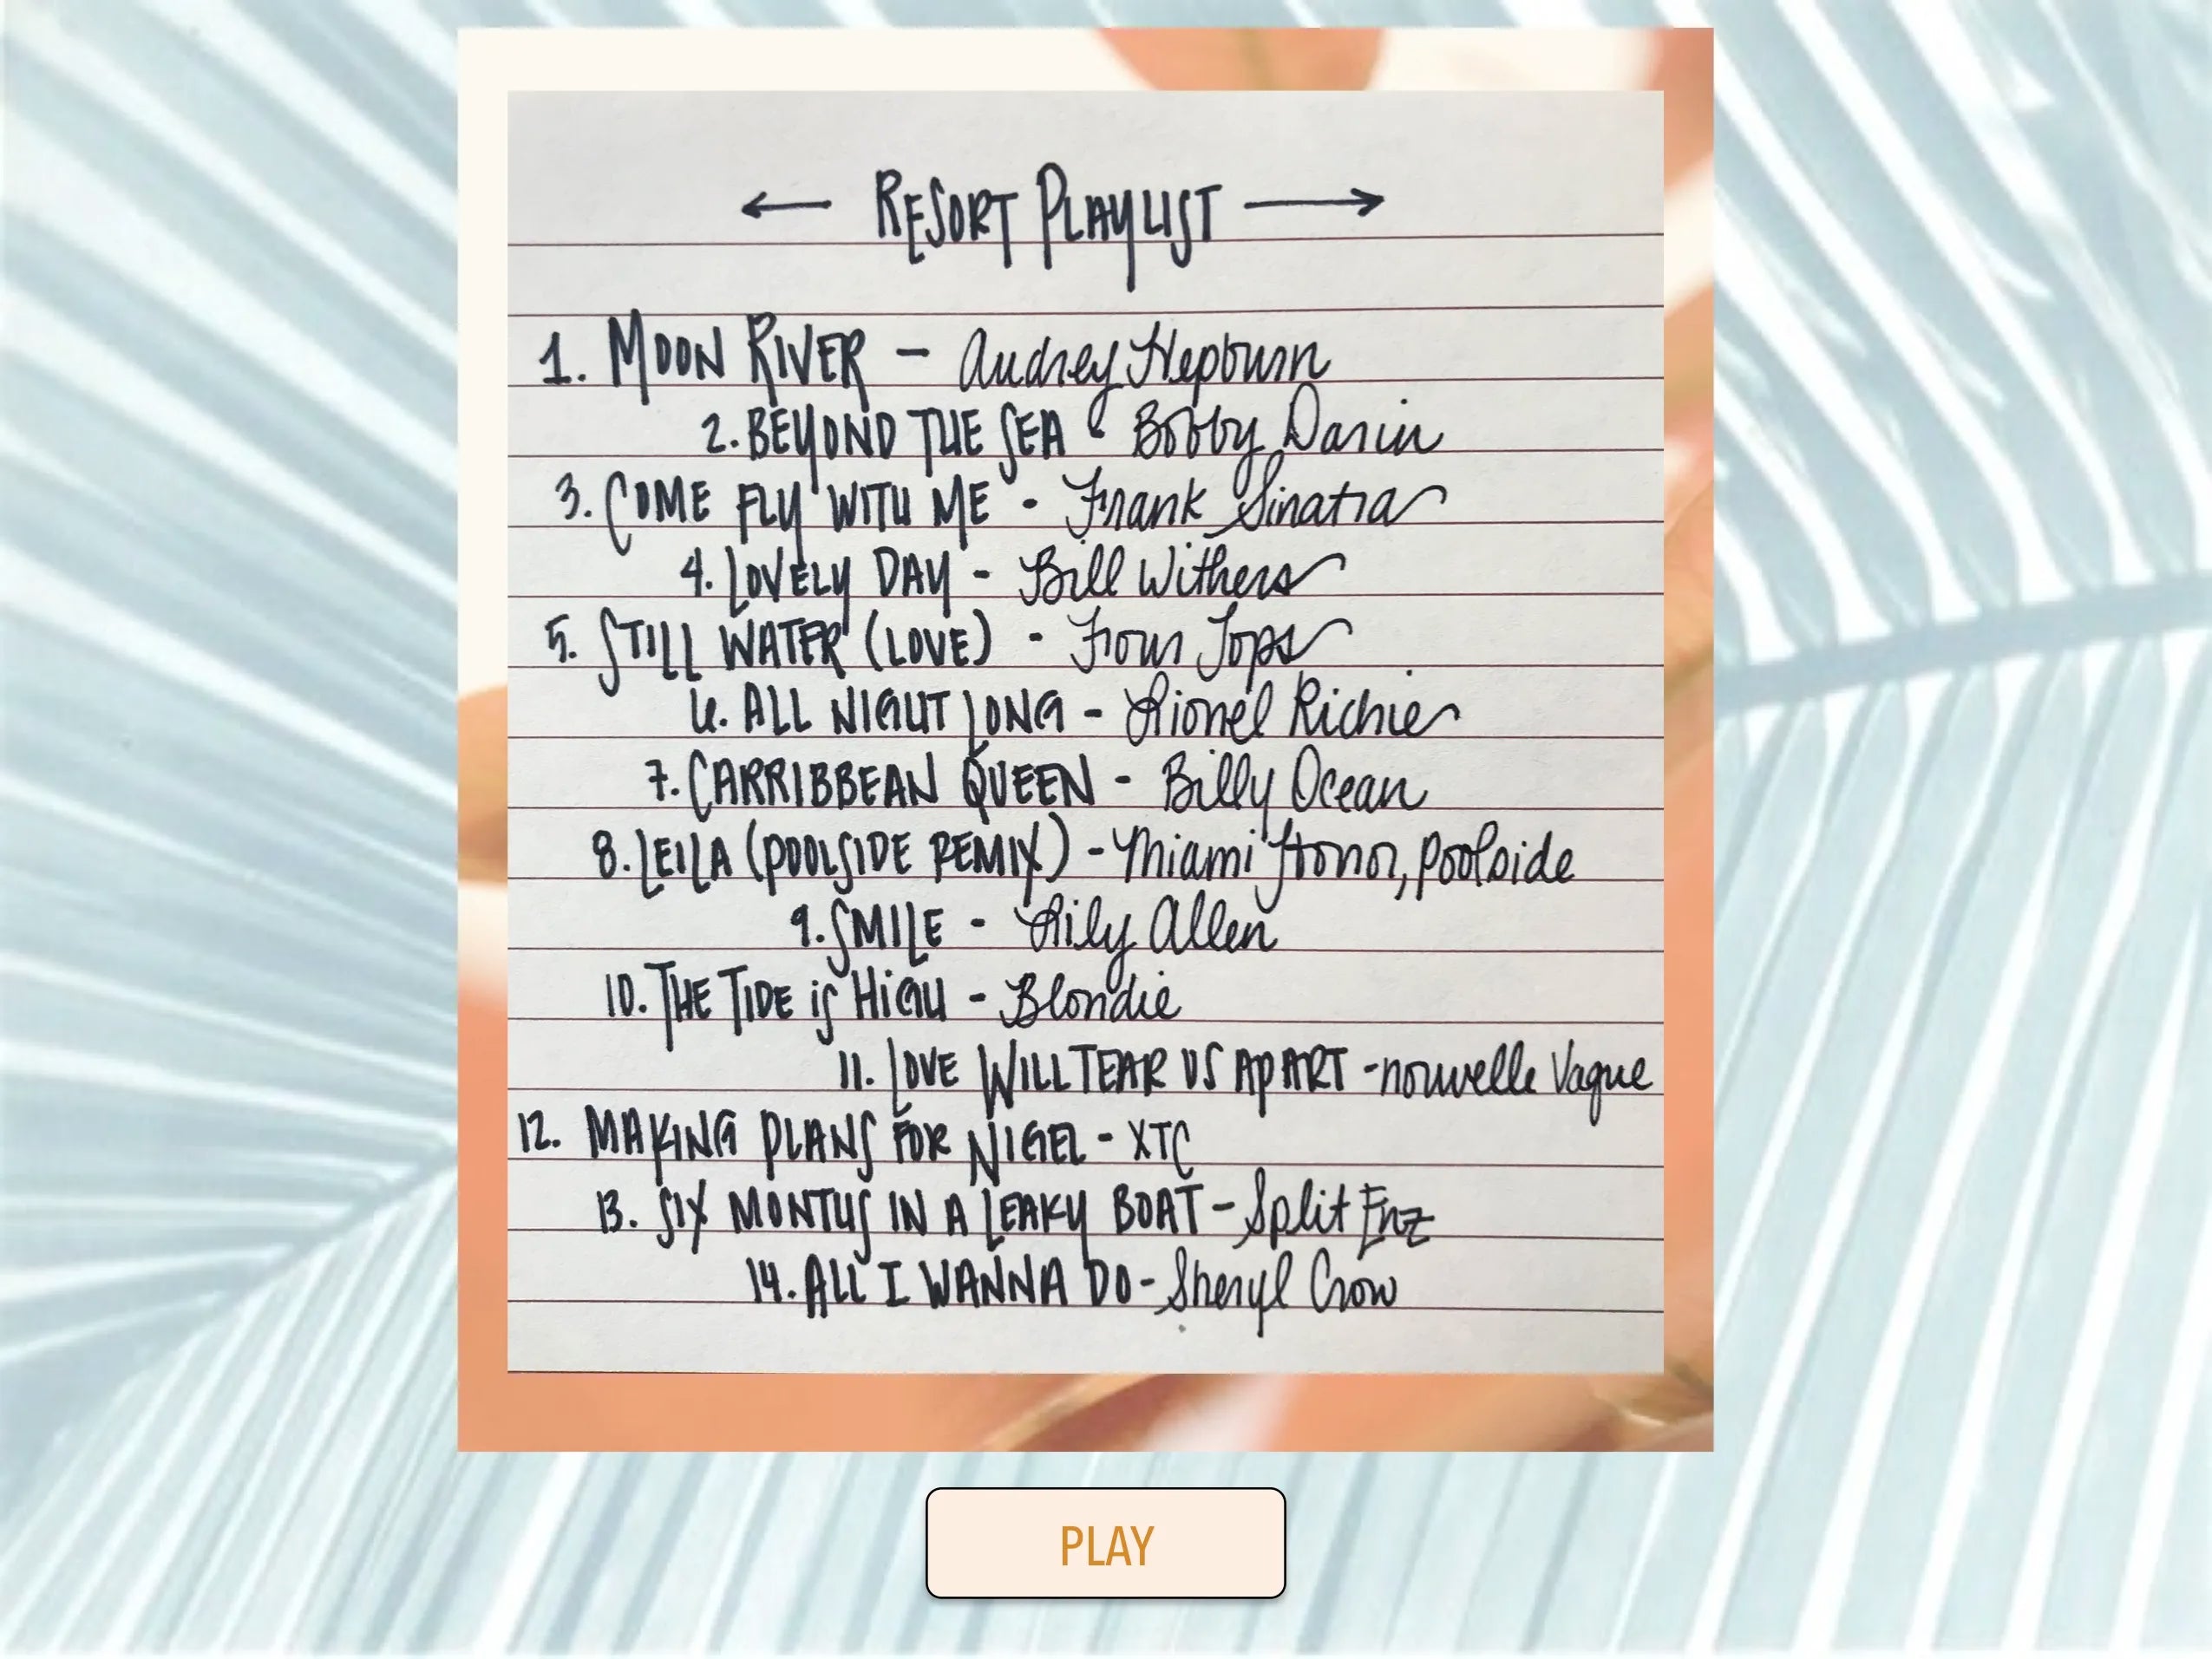 ← RESORT PLAYLIST →
1. MOON RIVER - Audrey Hepburn
2. BEYOND THE SEA - Bobby Darin
3. COME FLY WITH ME - Frank Sinatra
4. LOVELY DAY - Bill Withers
5. STILL WATER (LOVE) - Four Tops
6. ALL NIGHT LONG - Lionel Richie
7. CARRIBBEAN QUEEN - Billy Ocean
8. LEILA (POOLSIDE REMIX) - Miami Horror, Poolside
9. SMILE - Lily Allen
10. THE TIDE iS HIGH - Blondie
11. LOVE WILL TEAR US APART - nouvelle Vague
12. MAKING PLANS FOR NIGEL - XTC
13. SIX MONTHS IN A LEAKY BOAT - Split Enz
14. ALL I WANNA DO - Sheryl Crow
PLAY